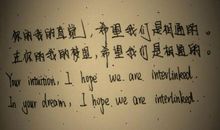 你的我的直觉，希望我们是相通的.
在你的我的梦里，希望我们是相通的.
Your intuition, I hope we are interlinked.
In your dream, I hope we are interlinked.